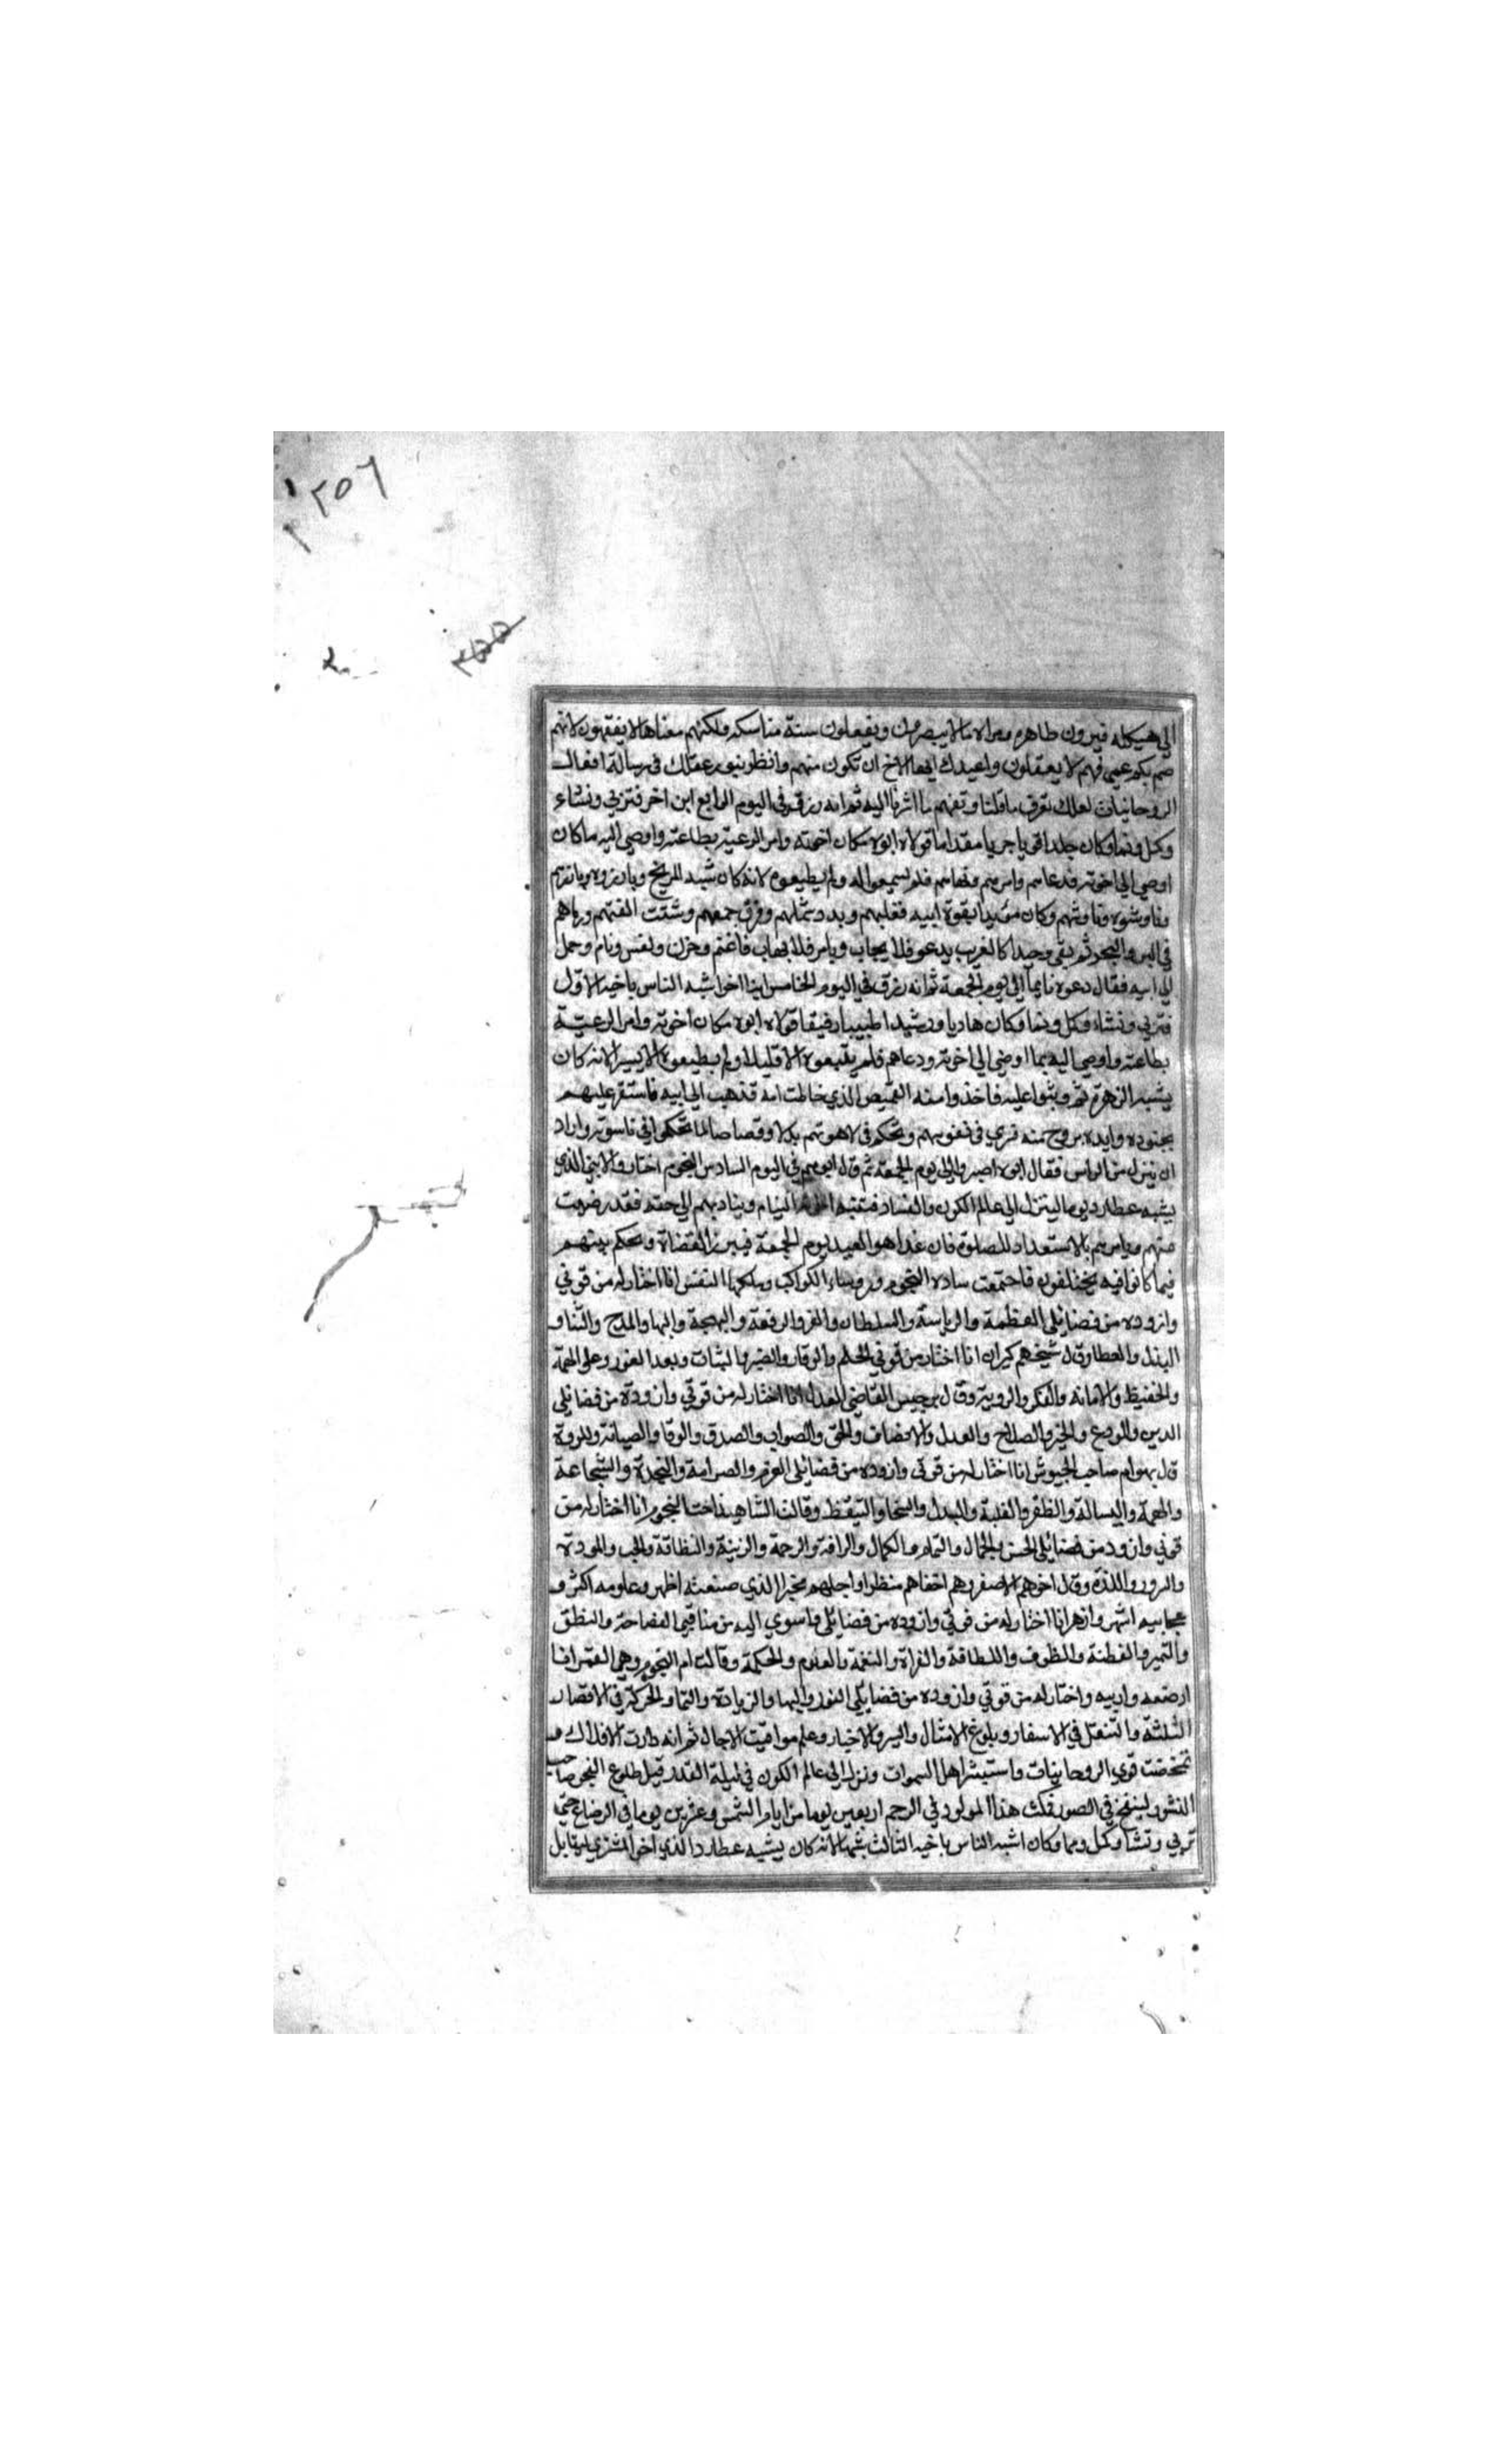 ٢٥٦
٢٥٥
الي هيكله فيرون ظاهره ومراه ما لا يبصرون ويفعلون سنة مناسكه ولكنهم معناها لا يفقهون لانهم
صم بكم عمي فهم لا يعقلون واعيدك ايها الاخ ان تكون منهم وانظر بنور عقلك في رسالة افعال
الروحانيات لعلك تعرف ما قلنا وتفهم ما اشرنا اليه ثم انه رزق في اليوم الرابع ابن اخر فتربي ونشاء
وكمل ونما وكان جلدا قويا جريا مقداما فولاه ابوه مكان اخوته وامر الرعية بطاعته واوصي اليه ما كان
اوصي الي اخوته فدعاهم وامرهم ونهاهم فلم يسمعوا له ولم يطيعوه لانه كان شبه المريخ وبارزوه وبارزهم
وناوشوه وناوشهم وكان مؤيدا بقوة ابيه فغلبهم وبدد شملهم وفرق جمعهم وشتت الفتهم ورماهم
في البر والبحر ثم بقي وحيدا كالغريب يدعو فلا يجاب ويامر فلا يهاب فاغتم وحزن ونعس ونام وحمل
الي ابيه فقال دعوه نايما الي يوم الجمعة ثم انه رزق في اليوم الخامس ابنا اخر اشبه الناس باخيه الاول
فتربي ونشاء وكمل ونما وكان هاديا ورشيدا طبيبا رفيقا فولاه ابوه مكان اخوته وامر الرعية
بطاعته واوصي اليه بما اوصي الي اخوته ودعاهم فلم يتبعوه الا قليلا ولم يطيعوه الا يسيرا لانه كان
يشبه الزهرة ثم وثبوا عليه فاخذوا منه القميص الذي خاطت امه فذهب الي ابيه فاستقر عليهم
بجنوده وايده بروح منه فسري في نفوسهم وتحكم في لاهوتهم بدلا وقصاصا لما تحكموا في ناسوته واراد
ان ينزل من الراس فقال ابوه اصبر الي يوم الجمعة ثم قال ابوهم في اليوم السادس للنجوم اختاروا لابني الذي
يشبه عطارد يوما لينزل الي عالم الكون والفساد فينبه اخوته النيام ويناديهم الي حقه فقد رضيت
منهم ويامرهم بالاستعداد للصلوة فان غدا هو العيد يوم الجمعة فيبرز القضاة ويحكم بينهم
فيما كانوا فيه يختلفون فاجتمعت سادة النجوم وروساء الكواكب وملكها الشمس انا اختار له من قوتي
وازوده من فضايلي العظمة والرياسة والسلطان والعز والرفعة والبهجة والبها والمدح والثنا و
البذل والعطا وقال شيخهم كيوان انا اختار من قوتي الحلم والوقار والصبر والثبات وبعد الغور وعلو الهمة
والحفيظ والامانة والفكر والروية وقال برجيس القاضي العدل انا اختار له من قوتي وازوده من فضايلي
الدين والورع والخير والصلاح والعدل والانصاف والحق والصواب والصدق والوفا والصيانة والمروة
قال بهرام صاحب الجيوش انا اختار له من قوتي وازوده من فضايلي العزم والصرامة والنجدة والشجاعة
والهمة والبسالة والظفر والغلبة والبذل والسخا والتيقظ وقالت الشاهيد اخت النجوم انا اختار له من
قوتي وازوده من فضايلي الحسن والجمال والتمام والكمال والرافة والرحمة والزينة والنظافة والحب والمودة
والسرور واللذة وقال اخوهم الاصغر وهم اخفاهم منظرا واجلهم مخبرا الذي صنعته اظهر وعلومه اكثر و
عجايبه اشهر وازهر انا اختار له من قوتي وازوده من فضايلي فاسوي اليه من مناقبي الفصاحة والنطق
والتميز والفطنة والظرف واللطافة والقراة والنغمة والعلوم والحكمة وقالت ام النجوم وهي القمر انا
ارضعه واربيه واختار له من قوتي وازوده من فضايلي النور والبها والزيادة والنما والحركة في الاقطار
الثلثة والتنقل في الاسفار وبلوغ الامثال والسير والاخبار وعلم مواقيت الاجال ثم انه دارت الافلاك و
تمخضت قوي الروحانيات واستبشر اهل السموات ونزل الي عالم الكون في ليلة القدر قبل طلوع الفجر صاحب
النشور لينفخ في الصور فمكث هذا المولود في الرحم اربعين يوما من ايام الشمس وعشرين يوما في الرضاع حتي
تربي ونشا وكمل ونما وكان اشبه الناس باخيه الثالث شبها لانه كان يشبه عطارد الذي اخو المشتري المقابل